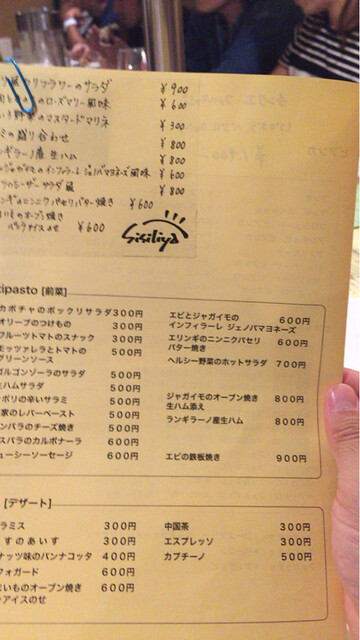 カリフラワーのサラダ ¥900
のローズマリー風味 ¥600
野菜のマスタードマリネ ¥300
の盛り合わせ ¥800
ンギラーノ産生ハム ¥800
インフィラーレ ジェノバマヨネーズ風味 ¥600
シーザーサラダ風 ¥800
ンギのニンニクパセリバター焼き ¥600
オーブン焼き
バニラアイスのせ ¥600
Sisiliya
tipasto [前菜]
カボチャのポックリサラダ 300円
オリーブのつけもの 300円
フルーツトマトのスナック 300円
モッツァレラとトマトの 500円
グリーンソース
ガルゴンゾーラのサラダ 500円
生ハムサラダ 500円
ポリの辛いサラミ 500円
家のレバーペースト 500円
ンバラのチーズ焼き 500円
スパラのカルボナーラ 600円
ューシーソーセージ 600円
エビとジャガイモの 600円
インフィラーレ ジェノバマヨネーズ
エリンギのニンニクパセリ 600円
バター焼き
ヘルシー野菜のホットサラダ 700円
ジャガイモのオーブン焼き 800円
生ハム添え
ランギラーノ産生ハム 800円
エビの鉄板焼き 900円
[デザート]
ラミス 300円
すのあいす 300円
ナッツ味のパンナコッタ 400円
フォガード 600円
いものオーブン焼き 600円
アイスのせ
中国茶 300円
エスプレッソ 300円
カプチーノ 500円